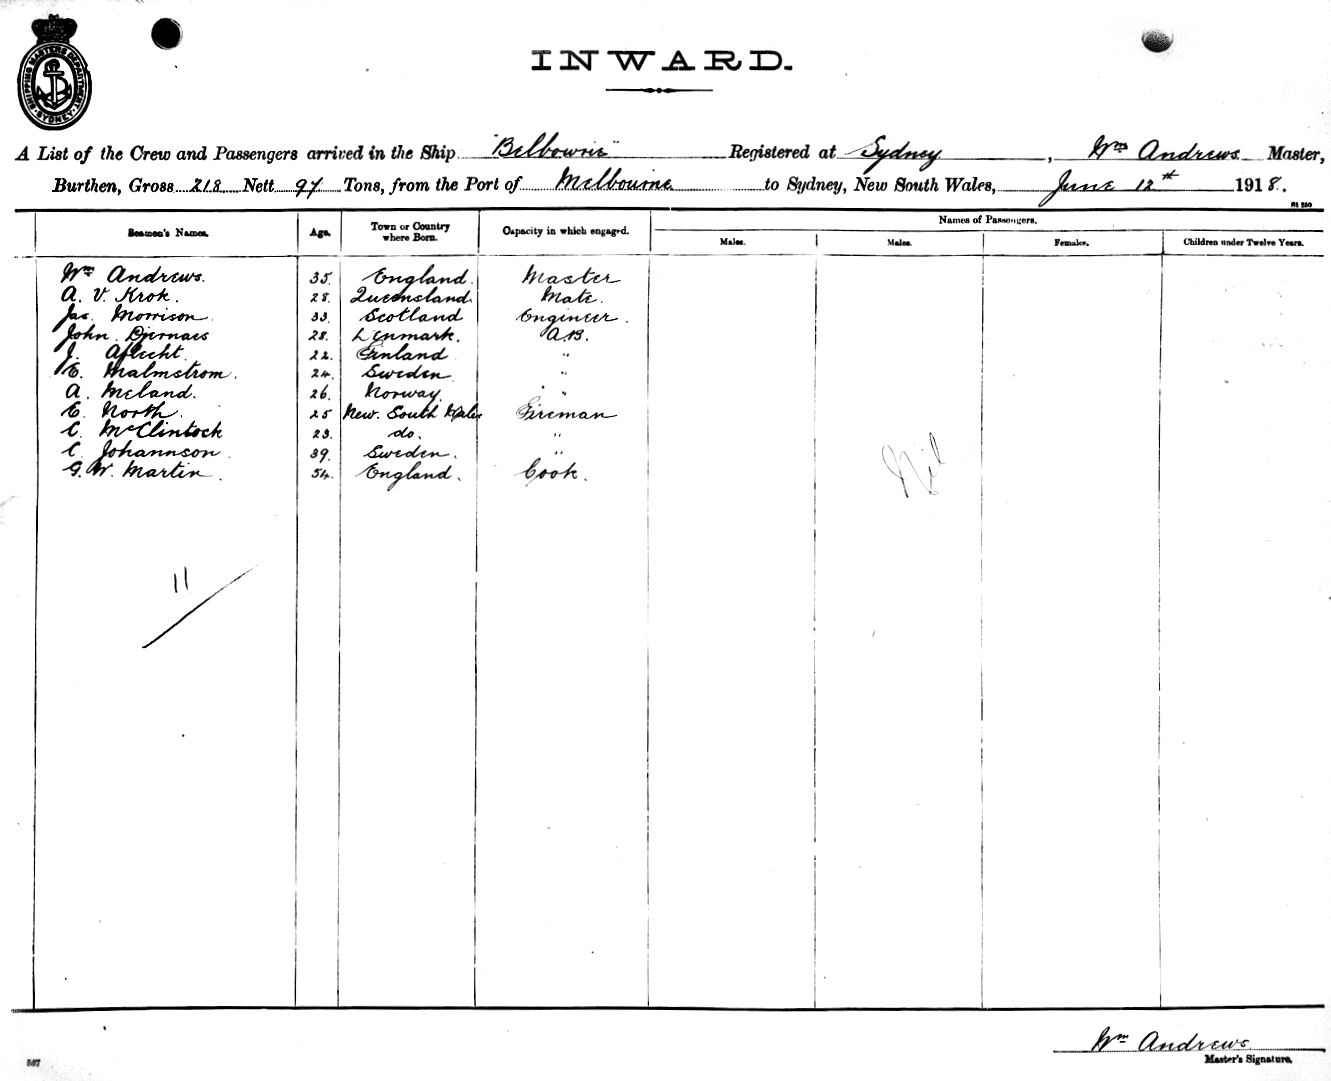 SHIPPING MASTERS DEPARTMENT SYDNEY
INWARD.
A List of the Crew and Passengers arrived in the Ship "Belbowrie" Registered at Sydney, Wm Andrews Master,
Burthen, Gross 218 Nett 97 Tons, from the Port of Melbourne to Sydney, New South Wales, June 12th 1918.
Names of Passengers.
Seamen's Names. Age. Town or Country where Born. Capacity in which engaged. Males. Males. Females. Children under Twelve Years.
Wm Andrews. 35. England. Master
A. V. Krok. 28. Queensland. Mate.
Jas. Morrison 33. Scotland Engineer.
John 28. Denmark. A.B.
J. 22. Finland "
E. Malmstrom. 24. Sweden "
A. Meland. 26. Norway. "
E. North. 25 New South Wales Fireman
C. McClintock 23. do. "
C. Johannson 39. Sweden. "
G. W. Martin. 54. England. Cook.
Nil
11
Wm Andrews
Master's Signature.
567